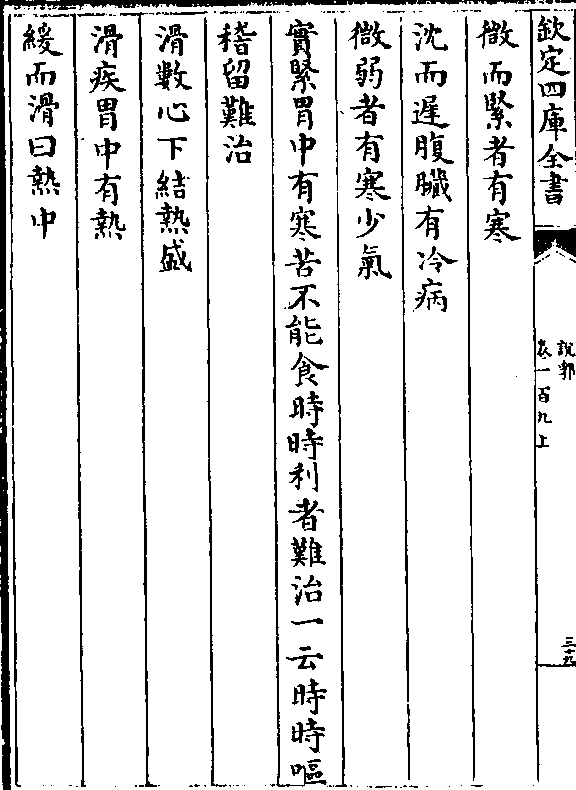 欽定四庫全書
說郛
卷一百九上
三十九
微而緊者有寒
沈而遲腹臟有冷病
微弱者有寒少氣
實緊胃中有寒苦不能食時時利者難治一云時時嘔
稽留難治
滑數心下結熱盛
滑疾胃中有熱
緩而滑曰熱中